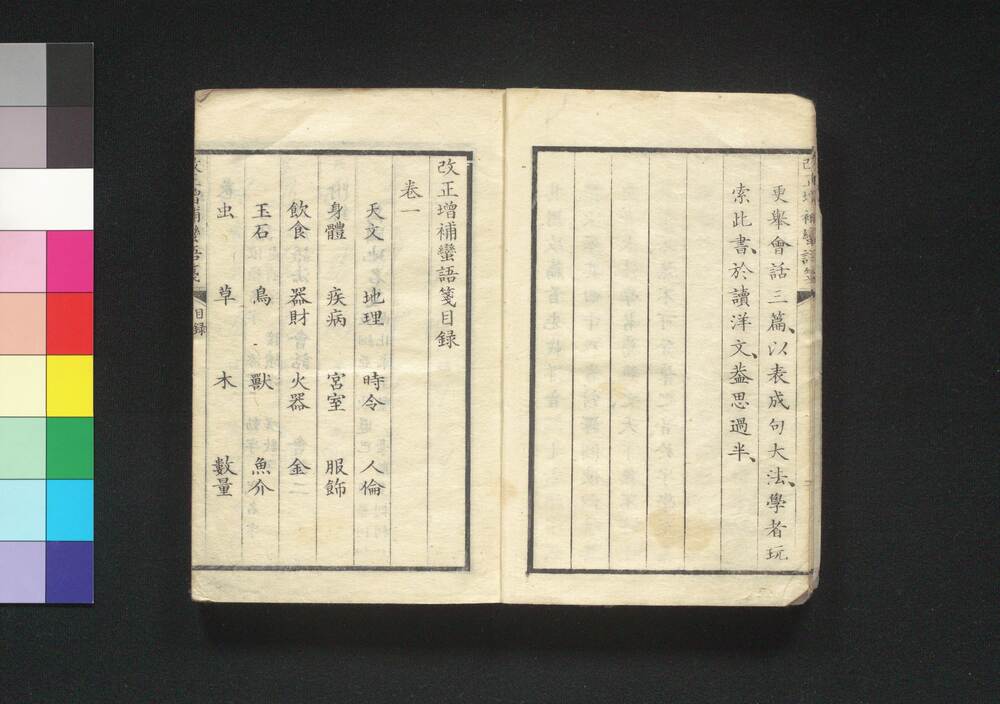 更舉會話三篇、以表成句大法、學者玩
索此書、於讀洋文、益思過半、
改正増補蠻語箋
改正増補蠻語箋目録
卷一
天文 地理 時令 人倫
身體 疾病 宮室 服飾
飲食 器財 火器 金
玉石 鳥 獸 魚介
虫 草 木 數量
改正増補蠻語箋
目録